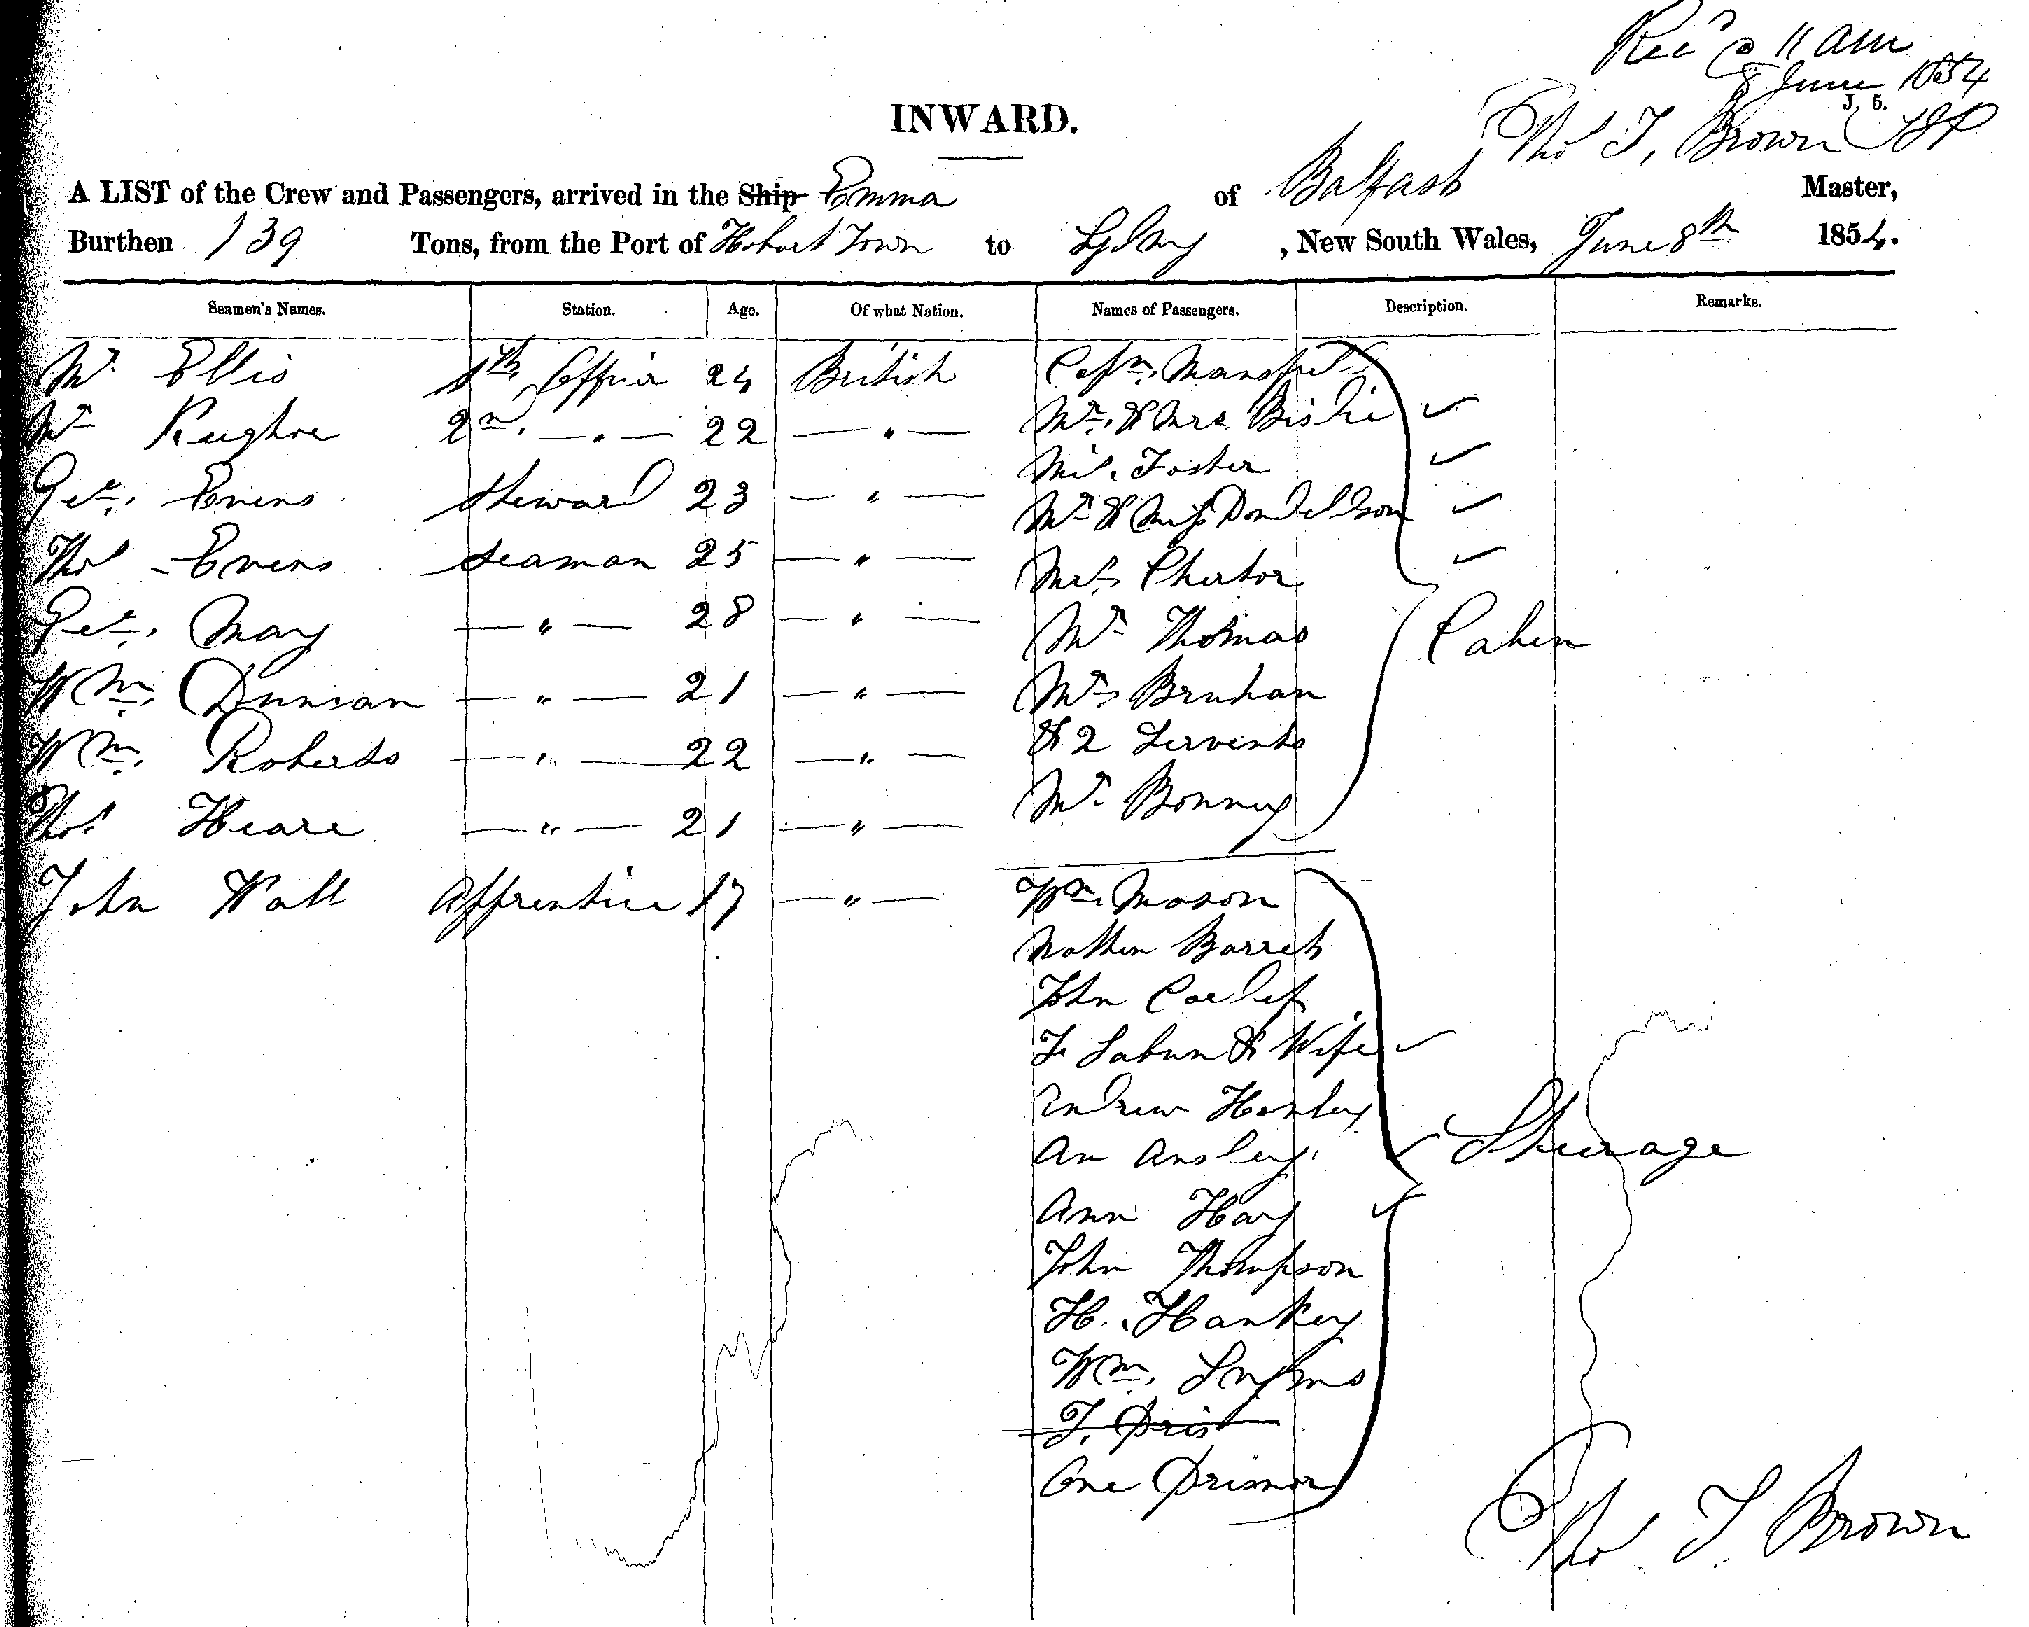 Recd @ 11 am
8 June 1854
J, 5.
Thos T, Brown
INWARD.
A LIST of the Crew and Passengers, arrived in the Ship Emma of Belfast Master,
Burthen 139 Tons, from the Port of Hobart Town to Sydney, New South Wales, June 8th 1854.
Seamen's Names. Station. Age. Of what Nation. Names of Passengers. Description. Remarks.
Mr Ellis Officer 24 British Capn. Mansfield
Mr 2nd. — " — 22 — " — Mr. & Mrs
Geo. Evens Steward 23 — " — Foster
Thos Evens Seaman 25 — " — Mr & Donaldson
Geo. May — " — 28 — " — Mrs
Wm. Duncan — " — 21 — " — Mr Thomas
Wm. Roberts — " — 22 — " — Mrs
Thos Heare — " — 21 — " — & 2 Servents
Mr. Bonney
Cabin
John Wall Apprentice 17 — " — Wm. Mason
Nathen Barret
John
& Wife
Andrew Hanley
An Ansley
Ann Hay
John Thompson
H. Hankey
Wm.
T. Pris
One Prisnor
Steerage
Thos T Brown